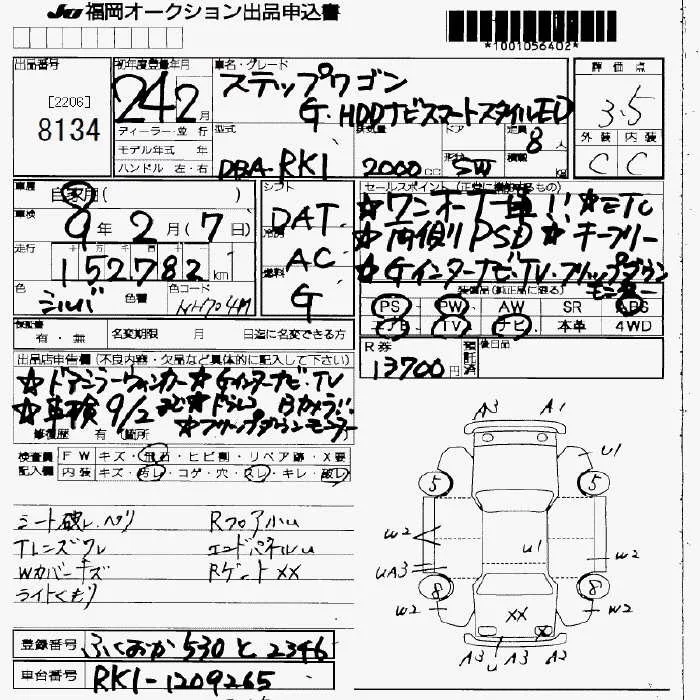 JU福岡オークション出品申込書
*1001056402*
出品番号
[2206]
8134
初年度登録年月
24 2月
ディーラー・並行
モデル年式 年
ハンドル 左・右
車名・グレード
ステップワゴン
G・HDDナビスマートスタイルED
型式
DBA-RK1
排気量
2000cc
ドア
形状
5W
定員
8人
積載
kg
評価点
3.5
外装 内装
C C
車歴
自家用( )
車検
9年2月(7日)
走行
152782km
色
シルバ
色替
色コード
NH704M
シフト
DAT
冷房
AC
燃料
G
セールスポイント(正常に機能するもの)
☆ワンオーナー車!! ☆ETC
☆両側PSD ☆キーフリー
☆Gインターナビ・TV・フリップダウン
モニター
装備品(純正品に限る)
PS PW AW SR ABS
エアB TV ナビ 本革 4WD
保証書
有・無
名変期限 月 日迄に名変できる方
R券
13700円
預託済
後日品
出品店申告欄(不良内容・欠品など具体的に記入して下さい)
☆ドアミラーウィンカー☆Gインターナビ・TV
☆車検9/2まで☆ドラレコ Bカメラ!!
☆フリップダウンモニター
修復歴 有(箇所
検査員記入欄
FW キズ・飛石・ヒビ割・リペア跡・X要
内装 キズ・汚レ・コゲ・穴・スレ・キレ・破レ
シート破レ・ヘリ
Tレンズワレ
Wカバーキズ
ライトくもり
Rフロア小u
エンドパネルu
Rゲート XX
A3 A1
U1
5 5
W2
U1
W2
UA3
8 8
W2 W2
XX
X
A3 U A3
登録番号
ふくおか 530 と 2346
車台番号
RK1-1209265